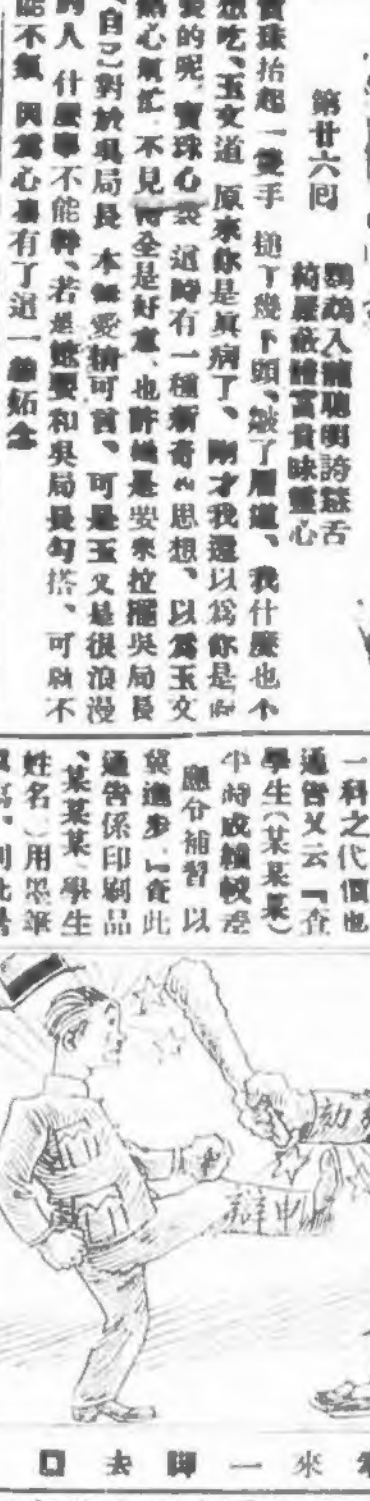 第廿六回
鸚鵡入簾聰明誇慧舌
綺羅依檻富貴昧童心
寶珠抬起一雙手 搥了幾下頭、皺了眉道、我什麼也不
想吃、玉文道 原來你是眞病了、剛才我還以爲你是
的呢、寶珠心裏 這時有一種新奇的思想、以爲玉文
熱心幫忙 不見得全是好意、也許她是要來拉攏吳局長
、自己對於吳局長 本無愛情可言、可是玉文是很浪漫
的人 什麼事不能幹、若是她要和吳局長勾搭、可就不
能不氣 因爲心裏有了這一種妬念
一科之代價也
通告又云『查
學生(某某某)
平時成績較差
應令補習 以
冀進步』查此
通告係印刷品
、某某某 學生
姓名)用墨筆
劾
申辯
來一脚去